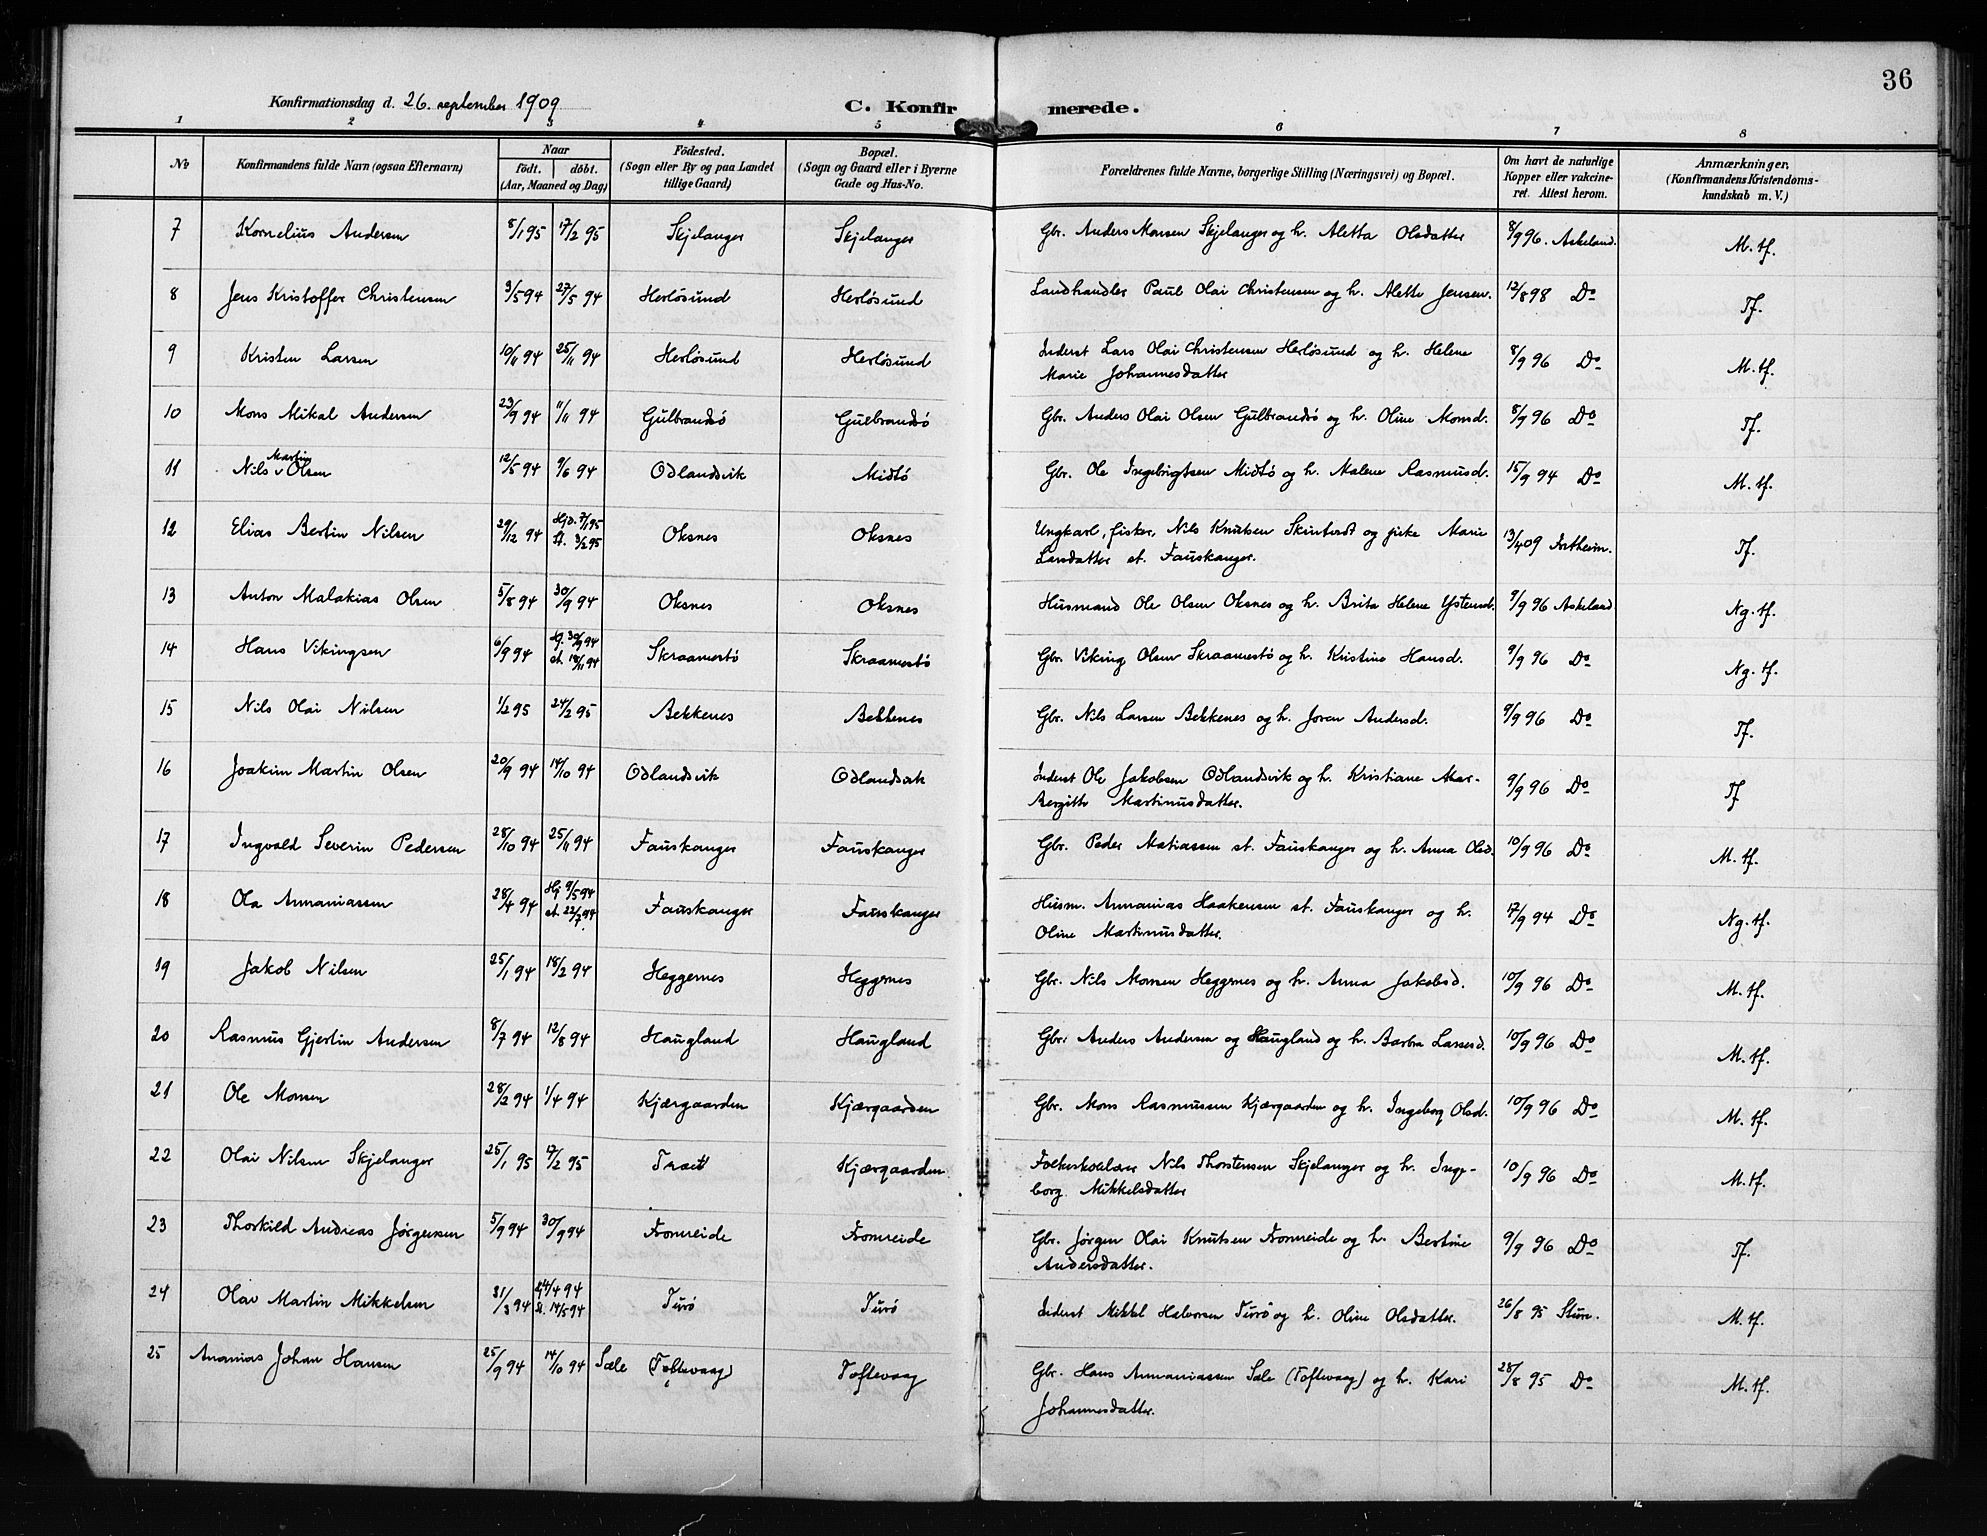 36
Konfirmationsdag d. 26. september 1909
C. Konfirmerede.
1 2 3 4 5 6 7 8
No
Konfirmandens fulde Navn (ogsaa Efternavn)
Naar
födt. döbt.
(Aar, Maaned og Dag)
Födested.
(Sogn eller By og paa Landet
tillige Gaard)
Bopæl.
(Sogn og Gaard eller i Byerne
Gade og Hus-No.
Forældrenes fulde Navne, borgerlige Stilling (Næringsvei) og Bopæl.
Om havt de naturlige
Kopper eller vakcine-
ret. Attest herom.
Anmærkninger.
(Konfirmandens Kristendoms-
kundskab m. V.)
7 Kornelius Andersen 8/1 95 17/2 95 Skjelanger Skjelanger Gbr. Anders Monsen Skjelanger og h. Aletta Olsdatter 8/9 96. Askeland. M. tf.
8 Jens Kristoffer Christensen 3/5 94 27/5 94 Herløsund Herløsund Landhandler Paul Olai Christensen og h. Alette Jensen. 12/8 98 Do Tf.
9 Kristen Larsen 10/11 94 25/11 94 Herløsund Herløsund Inderst Lars Olai Christensen Herløsund og h. Helene
Marie Johannesdatter 8/9 96 Do M. tf.
10 Mons Mikal Andersen 23/9 94 11/11 94 Gulbrandsö Gulbrandsö Gbr. Anders Olai Olsen Gulbrandsö og h. Oline Monsd. 8/9 96 Do Tf.
11 Nils Martin Olsen 12/5 94 9/6 94 Odlandsvik Midtö Gbr. Ole Ingebrigtsen Midtö og h. Malene Rasmusd. 15/9 94 Do M. tf.
12 Elias Bertin Nilsen 29/12 94 Hjd. 7/1 95
St. 3/2 95 Oksnes Oksnes Ungkarl, fisker, Nils Knutsen og pike Marie
Larsdatter st. Fauskanger. 13/4 09 Tf.
13 Anton Malakias Olsen 5/8 94 30/9 94 Oksnes Oksnes Husmand Ole Olsen Oksnes og h. Brita Helene 9/9 96 Askeland Ng. tf.
14 Hans Vikingsen 6/9 94 Hj. 30/9 94
st. 18/11 94 Skraamestö Skraamestö Gbr. Viking Olsen Skraamestö og h. Kristine Hansd. 9/9 96 Do Ng. tf.
15 Nils Olai Nilsen 1/2 95 24/2 95 Bekkenes Bekkenes Gbr. Nils Larsen Bekkenes og h. Joran Andersd. 9/9 96 Do Tf.
16 Joakim Martin Olsen 20/9 94 14/10 94 Odlandsvik Odlandsvik Inderst Ole Jakobsen Odlandsvik og h. Kristiane
Bergitte Martinusdatter. 9/9 96 Do Tf
17 Ingvald Severin Pedersen 28/10 94 25/11 94 Fauskanger Fauskanger Gbr. Peder Matiassen st. Fauskanger og h. Anna Olsd. 10/9 96 Do M. tf.
18 Ola Annaniassen 28/4 94 Hj 9/5 94
st. 22/7 94. Fauskanger Fauskanger Husm. Annanias Haakensen st. Fauskanger og h.
Oline Martinusdatter. 17/9 94 Do Ng. tf.
19 Jakob Nilsen 25/1 94 18/2 94 Heggernes Heggernes Gbr. Nils Monsen Heggernes og h. Anna Jakobsd. 10/9 96 Do M. tf.
20 Rasmus Gjertin Andersen 8/7 94 12/8 94 Haugland Haugland Gbr. Anders Andersen og Haugland og h. Barbra Larsesd. 10/9 96 Do M. tf.
21 Ole Monsen 28/2 94 1/4 94 Kjærgaarden Kjærgaarden Gbr. Mons Rasmussen Kjærgaarden og h. Ingeborg Olsd. 10/9 96 Do M. tf.
22 Olai Nilsen Skjelanger 25/1 95 17/2 95 Træt Kjærgaarden Folkeskolelærer Nils Thorstensen Skjelanger og h. Inge-
borg Mikkelsdatter 10/9 96 Do M. tf.
23 Thorkild Andreas Jörgensen 5/9 94 30/9 94 Fromreide Fromreide Gbr. Jörgen Olai Knutsen Fromreide og h. Bertine
Andersdatter. 9/9 96 Do Tf.
24 Olav Martin Mikkelsen 31/3 94 24/4 94
st. 14/5 94 Turö Turö Inderst Mikkel Halvorsen Turö og h. Oline Olsdatter. 26/8 95 Sture. M. tf.
25 Ananias Johan Hansen 25/9 94 14/10 94 Sæle (Toftevaag) Toftevaag Gbr. Hans Annaniassen Sæle (Toftevaag) og h. Kari
Johannesdatter. 28/8 95 Do M. tf.